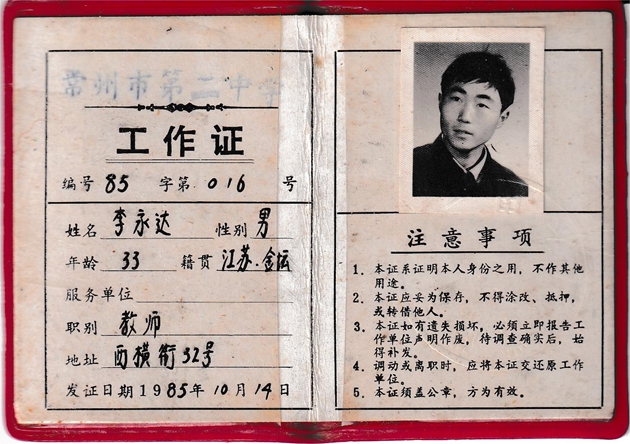 常州市第二中学
工作证
编号 85 字第 016 号
姓名 李永达 性别 男
年龄 33 籍贯 江苏·金坛
服务单位
职别 教师
地址 西横街32号
发证日期 1985年10月14日
注意事项
1. 本证系证明本人身份之用，不作其他
用途。
2. 本证应妥为保存，不得涂改、抵押，
或转借他人。
3. 本证如有遗失损坏，必须立即报告工
作单位声明作废，待调查确实后，始
得补发。
4. 调动或离职时，应将本证交还原工作
单位。
5. 本证须盖公章，方为有效。